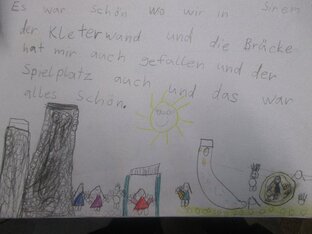 Es war schön wo wir in
der Kleterwand und die Brücke
hat mir auch gefallen und der
Spielplatz auch und das war
alles schön.